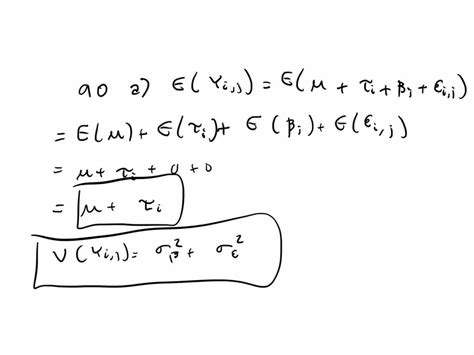 90 a) E(Yi,j) = E(μ + τi + βj + εi,j)
= E(μ) + E(τi) + E(βj) + E(εi,j)
= μ + τi + 0 + 0
= μ + τi
V(Yi,j) = σβ² + σε²